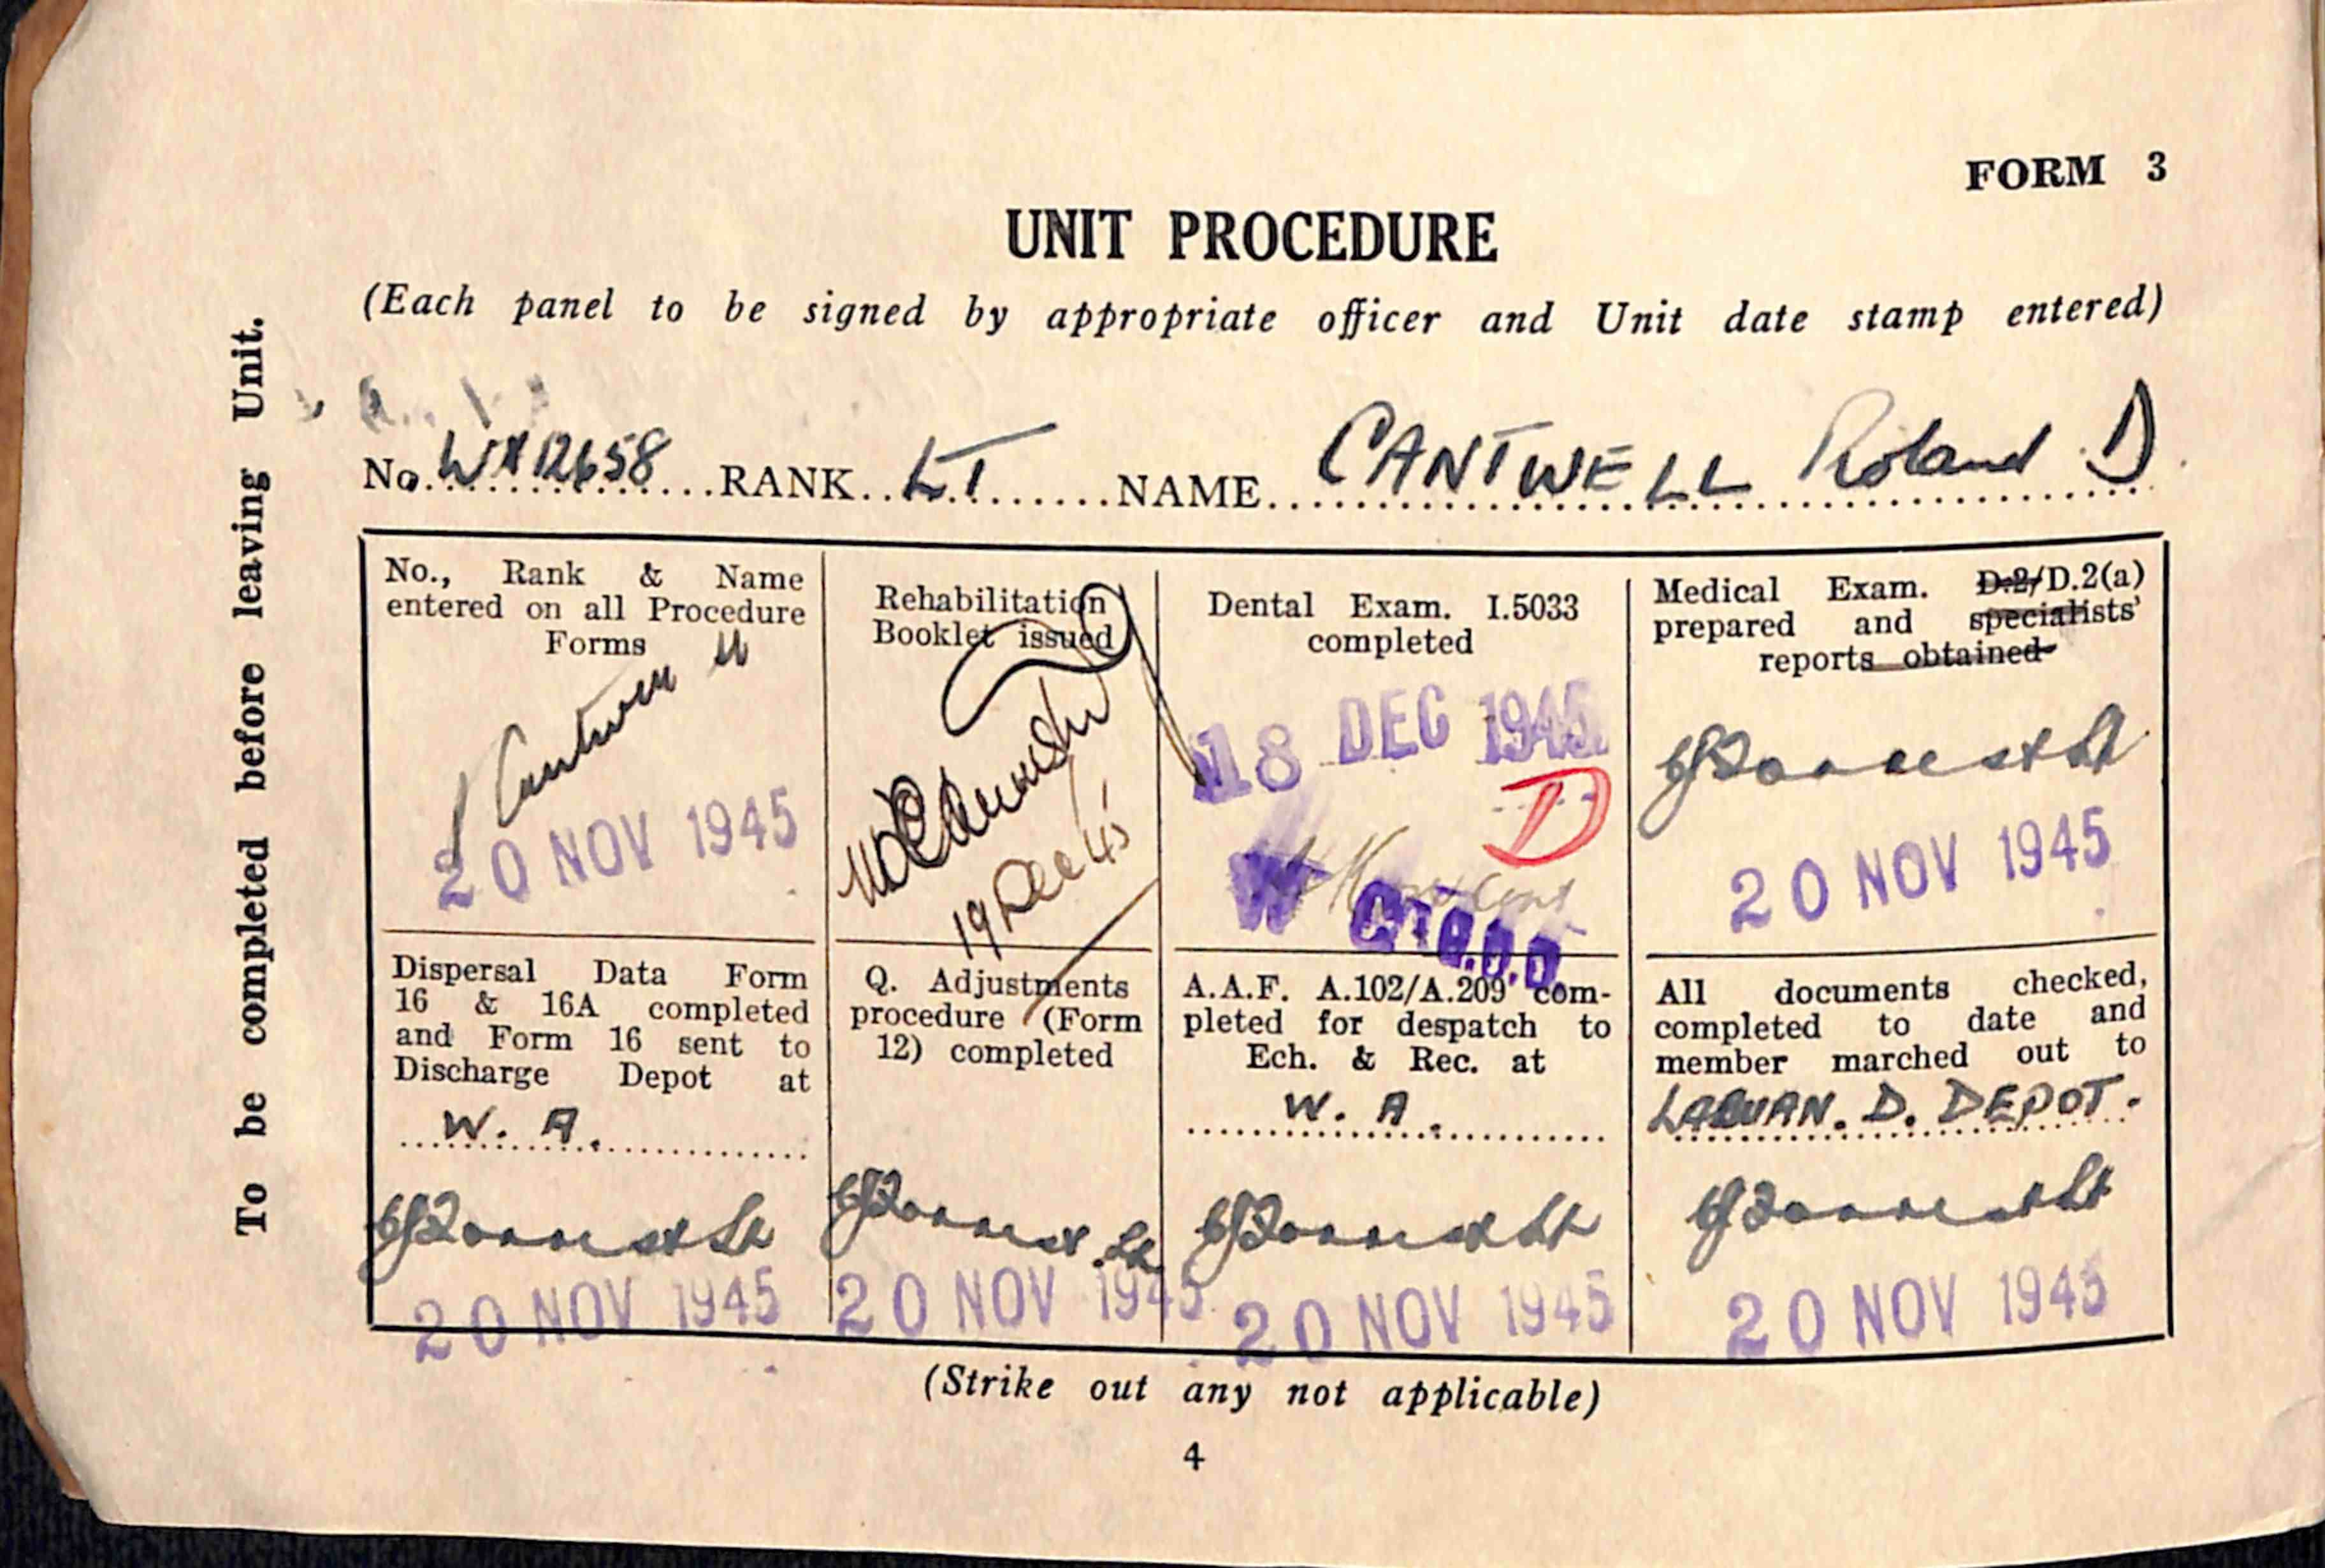 FORM 3
UNIT PROCEDURE
(Each panel to be signed by appropriate officer and Unit date stamp entered)
To be completed before leaving Unit.
No. WX12658 RANK LT NAME CANTWELL Roland D
No., Rank & Name
entered on all Procedure
Forms
Cantwell Lt
20 NOV 1945
Rehabilitation
Booklet issued
19 Dec 45
Dental Exam. I.5033
completed
18 DEC 1945
D
Medical Exam. D.2/D.2(a)
prepared and specialists'
reports obtained
Lt
20 NOV 1945
Dispersal Data Form
16 & 16A completed
and Form 16 sent to
Discharge Depot at
W. A.
Lt
20 NOV 1945
Q. Adjustments
procedure (Form
12) completed
Lt
20 NOV 1945
A.A.F. A.102/A.209 com-
pleted for despatch to
Ech. & Rec. at
W. A.
Lt
20 NOV 1945
All documents checked,
completed to date and
member marched out to
LABUAN. D. DEPOT.
Lt
20 NOV 1945
(Strike out any not applicable)
4